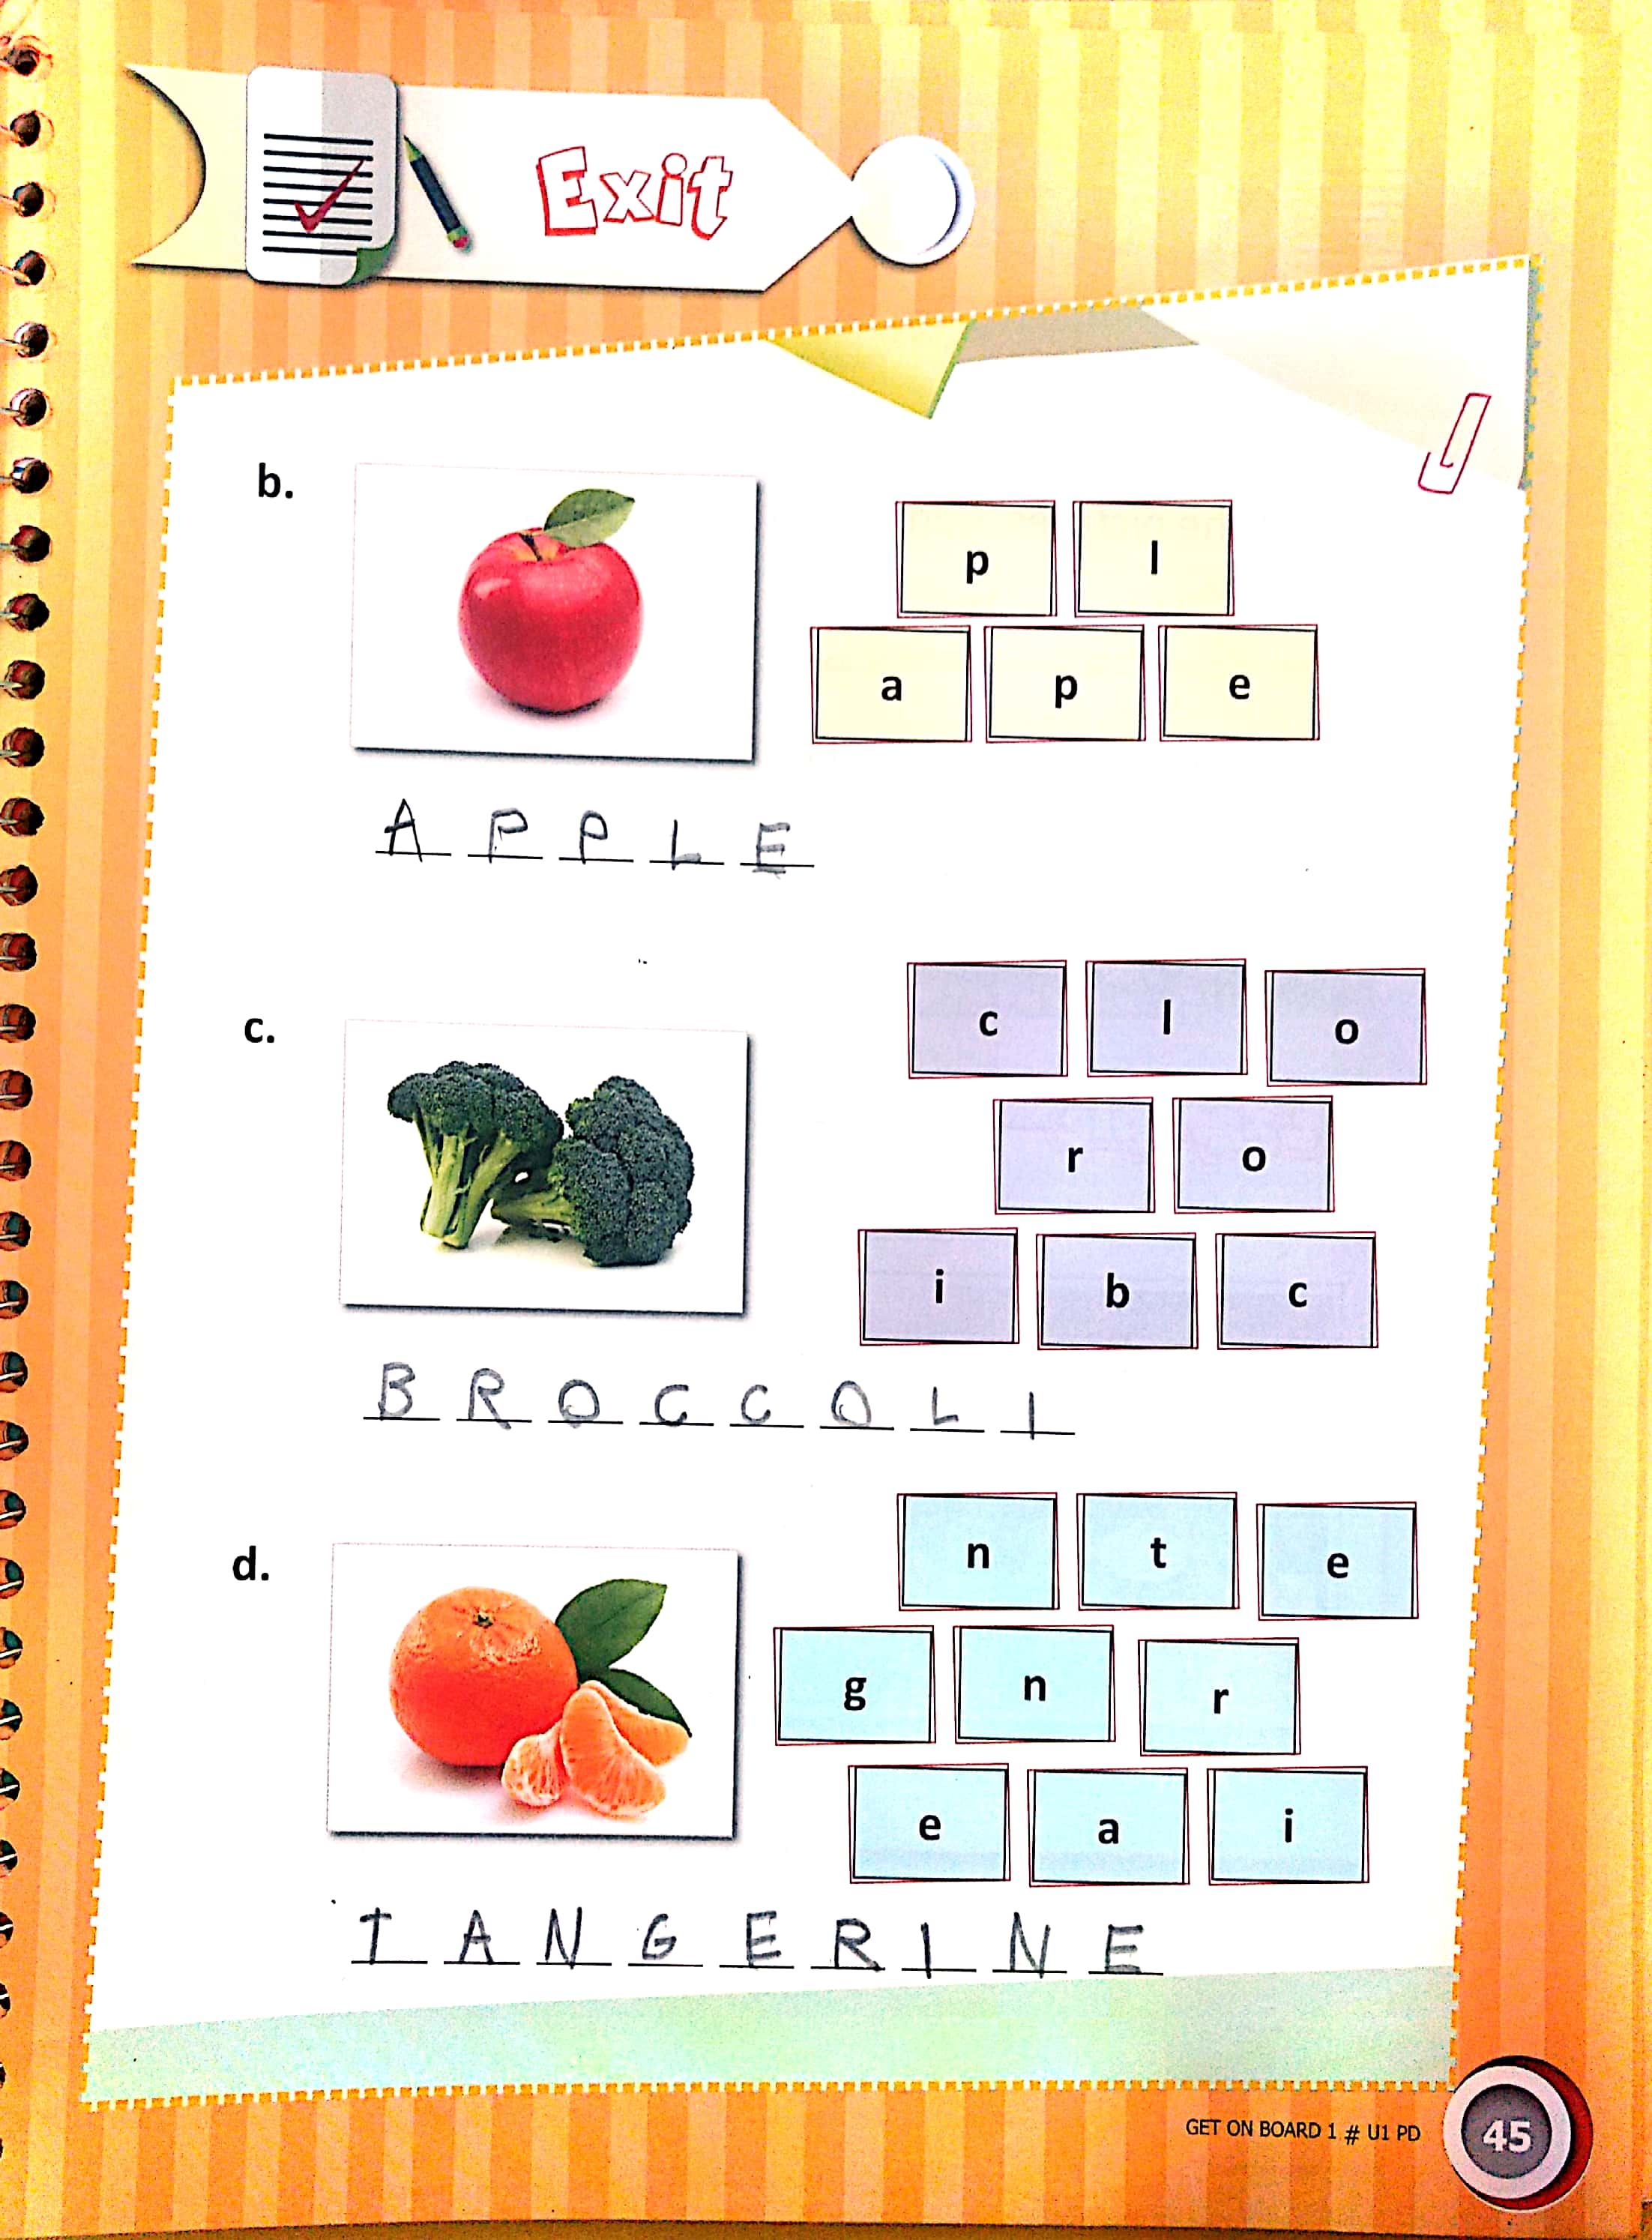 Exit
b.
p l
a p e
A P P L E
c.
c l o
r o
i b c
B R O C C O L I
d.
n t e
g n r
e a i
T A N G E R I N E
GET ON BOARD 1 # U1 PD 45